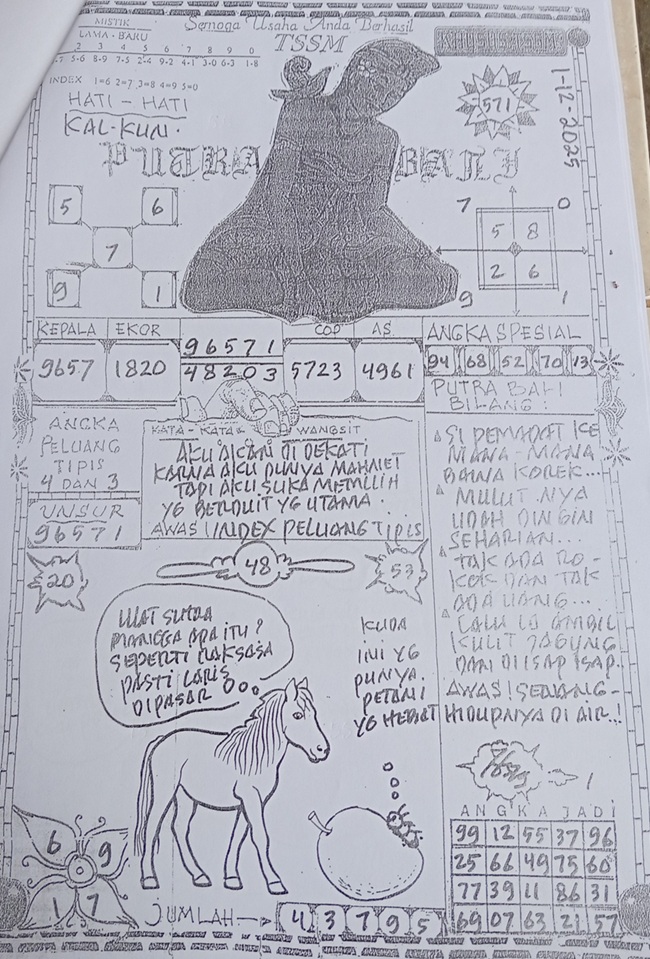 MISTIK
Semoga Usaha Anda Berhasil
LAMA - BARU
TSSM
2 3 4 5 6 7 8 9 0
5-6 8-9 7-5 2-4 9-2 4-1 3-0 6-3 1-8
INDEX 1=6 2=7 3=8 4=9 5=0
HATI - HATI
KAL-KUN.
571
1-12-2025
PUTRA BALI
5 6
7
9 1
7 0
5 8
2 6
9 1
KEPALA EKOR COP AS. ANGKA SPESIAL
9657 1820 96571 5723 4961
48203
94 68 52 70 13
PUTRA BALI
BILANG:
ANGKA
PELUANG
TIPIS
4 DAN 3
UNSUR
96571
KATA - KATA WANGSIT
AKU AKAN DI DEKATI
KARNA AKU PUNYA MAHNET
TAPI AKU SUKA MEMILIH
YG BERDUIT YG UTAMA.
AWAS! INDEX PELUANG TIPIS
SI PEMADAT KE
MANA-MANA
BAWA KOREK...
MULUT NYA
UDAH DINGIN
SEHARIAN...
TAK ADA RO-
KOK DAN TAK
ADA UANG...
LALU IA AMBIL
KULIT JAGUNG
DAN DI ISAP ISAP.
AWAS! SENANG-
HIDUPNYA DI AIR..!
20
48
53
ULAT SUKA
MANGGA APA ITU?
SEPERTI RAKSASA
PASTI LARIS
DIPASAR
KUDA
INI YG
PUNYA.
PETANI
YG HEBAT
6 9
1 7
JUMLAH
4 3 7 9 5
ANGKA JADI
99 12 55 37 96
25 66 49 75 60
77 39 11 86 31
69 07 63 21 57